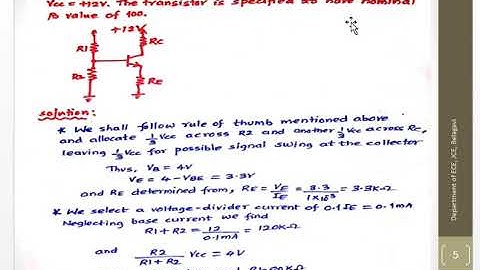 Vcc = +12V. The transistor is specified to have nominal
β value of 100.
+12V
R1
RC
R2
RE
Solution:
* We shall follow rule of thumb mentioned above
and allocate 1/3 Vcc across R2 and another 1/3 Vcc across Rc,
leaving 1/3 Vcc for possible signal swing at the collector
Thus, VB = 4V
VE = 4 - VBE = 3.3V
and RE determined from, RE = VE/IE = 3.3/1x10⁻³ = 3.3KΩ
* We select a voltage-divider current of 0.1IE = 0.1mA
Neglecting base current we find
R1 + R2 = 12/0.1mA = 120KΩ
and R2/R1+R2 Vcc = 4V
Department of ECE, JCE, Belagavi
5